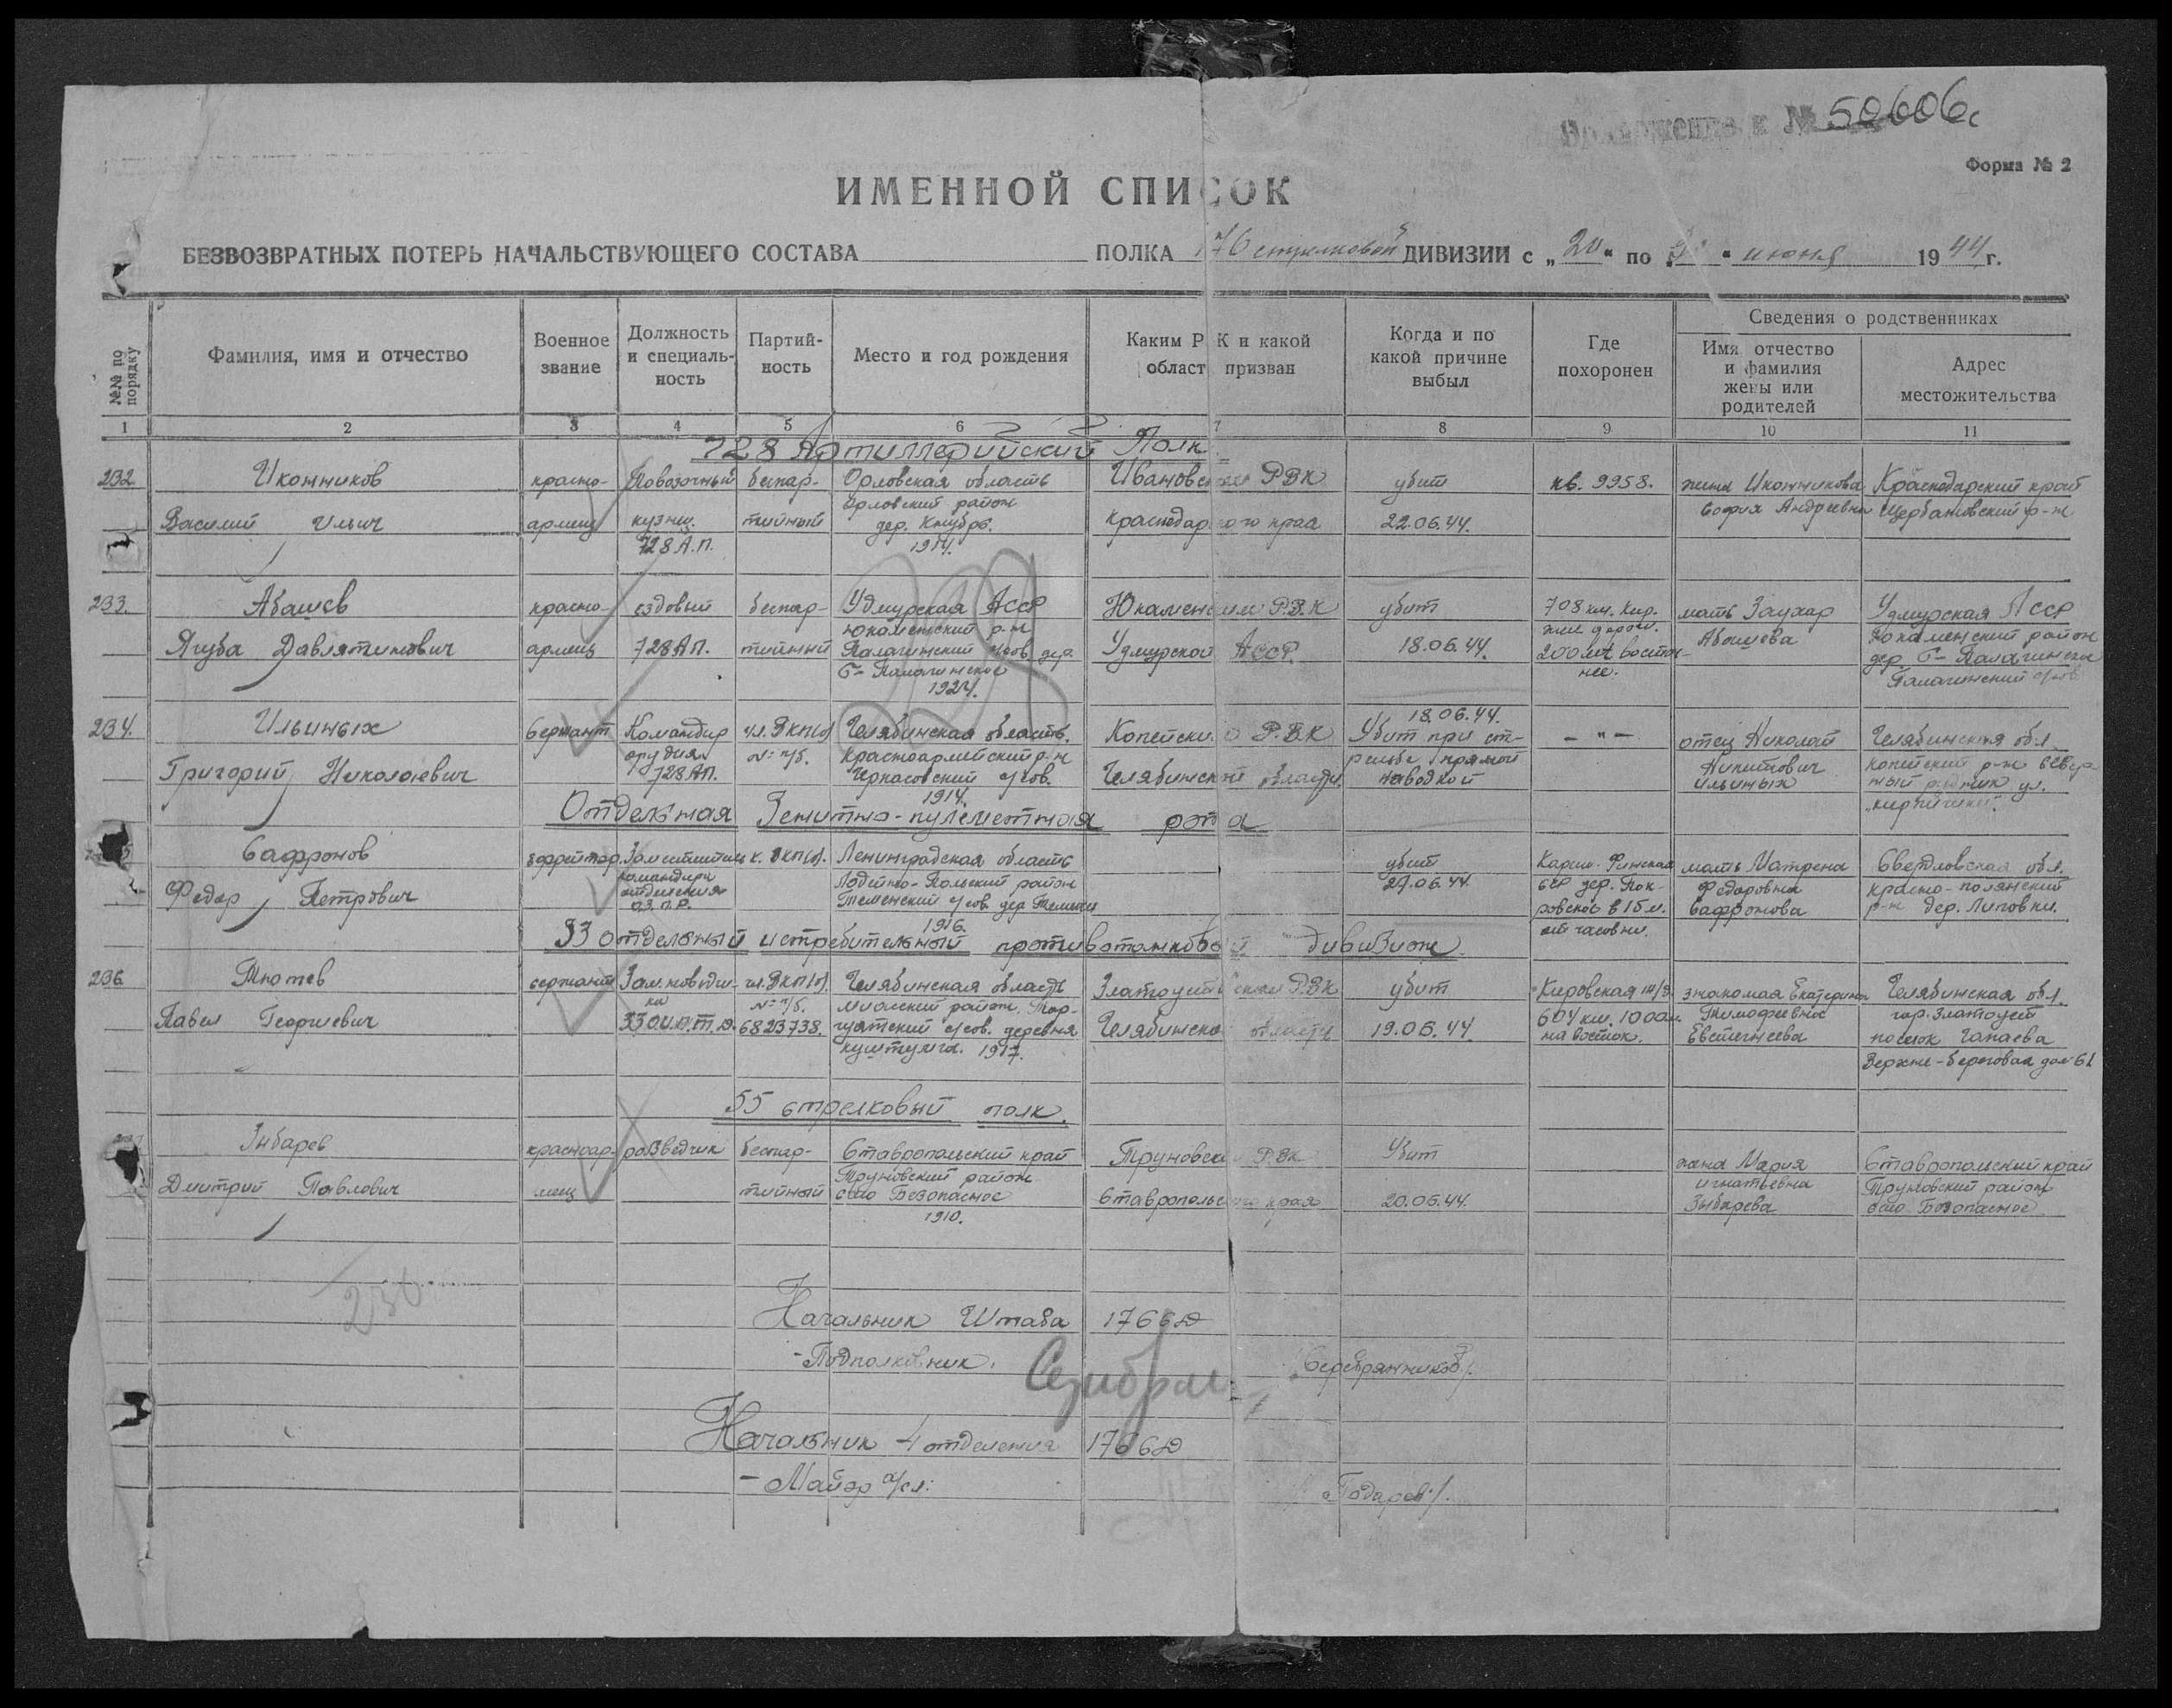 Приложение к № 50606с
Форма № 2
ИМЕННОЙ СПИСОК
БЕЗВОЗВРАТНЫХ ПОТЕРЬ НАЧАЛЬСТВУЮЩЕГО СОСТАВА ПОЛКА 176 стрелковой ДИВИЗИИ с „20“ по “ июня 1944 г.
№№ по порядку
Фамилия, имя и отчество
Военное звание
Должность и специальность
Партийность
Место и год рождения
Каким Р К и какой област призван
Когда и по какой причине выбыл
Где похоронен
Сведения о родственниках
Имя отчество и фамилия жены или родителей
Адрес местожительства
1 2 3 4 5 6 7 8 9 10 11
728 Артиллерийский Полк
232 Иконников красно- Повозочный беспар- Орловская область Ивановским РВК убит кв. 9958. жена Иконникова Краснодарский край
Орловский район
Василий Ильич армеец кузнец. тийный дер. Краснодарского края 22.06.44. София Андреевна Щербановский р-н
728 А.П. 1914.
233. Абашев красно- ездовый беспар- Удмурская АССР Юкаменским РВК убит 708 км. Кир. мать Заухар Удмурская АССР
Юкаменский р-н жел. дорог.
Ягуба Давлятинович армеец 728 АП. тийный Палагинский с/сов. дер. Удмурской АССР. 18.06.44. 200 мт восточ- Абашева Юкаменский район
Б-Палагинское нее. дер. Б-Палагинская
1924. Палагинский с/сов.
234. Ильиных Сержант Командир чл. ВКП(б) Челябинская область. Копейским РВК 18.06.44. Убит при ст- – " – отец Николай Челябинская обл.
орудия №: п/б. Красноармейский р-н рельбе прямой Никитович Копейский р-н Север-
Григорий Николаевич 728 АП. Черкасовский с/сов. Челябинской области наводкой Ильиных ный рудник ул.
1914. „кирпичики“.
Отдельная Зенитно-пулеметная рота
Сафронов ефрейтор. Заместитель к. ВКП(б). Ленинградская область убит Карело-Финская мать Матрена Свердловская обл.
командира Лодейно-Польский район 27.06.44. ССР дер. Пок- Федоровна красно-полянский
Федор Петрович отделения ровское в 15 м. Сафронова р-н дер. Липовки.
О.З.П.Р. 1916. от часовни.
33 отдельный истребительный противотанковый дивизион
236 Тютев сержант Зам. ковдин- чл. ВКП(б). Челябинская область Златоустовским РВК убит Кировская ж/д. знакомая Екатерина Челябинская обл.
№ п/б. Миасский район, 604 км. 1000 м. Тимофеевна гор. Златоуст
Павел Георгиевич 33 О.И.П.Т.Д. 6823738. с/сов. деревня Челябинской области 19.06.44. на восток. Евстегнеева поселок Чапаева
1917. Верхне-береговая дом 61
55 стрелковый полк.
Зибарев красноар- разведчик беспар- Ставропольский край Труновским РВК Убит жена Мария Ставропольский край
Труновский район Игнатьевна
Дмитрий Павлович меец тийный село Безопасное Ставропольского края 20.06.44. Зибарева Труновский район
1910. село Безопасное
230
Начальник Штаба 176 СД
- Подполковник. /Серебрянников/.
Начальник 4 отделения 176 СД
- Майор а/сл: